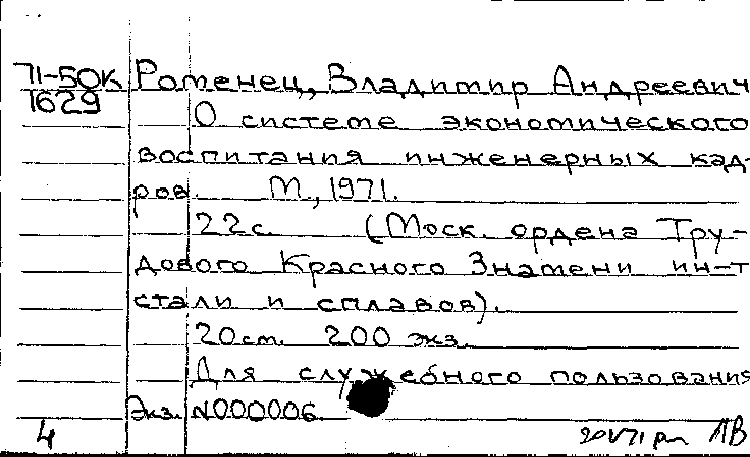 71-50К Роменец, Владимир Андреевич
1629
О системе экономического
воспитания инженерных кад-
ров. М., 1971.
22с. (Моск. ордена Тру-
дового Красного Знамени ин-т
стали и сплавов).
20см. 200 экз.
Для служебного пользования
Экз. N000006.
4 ЛВ